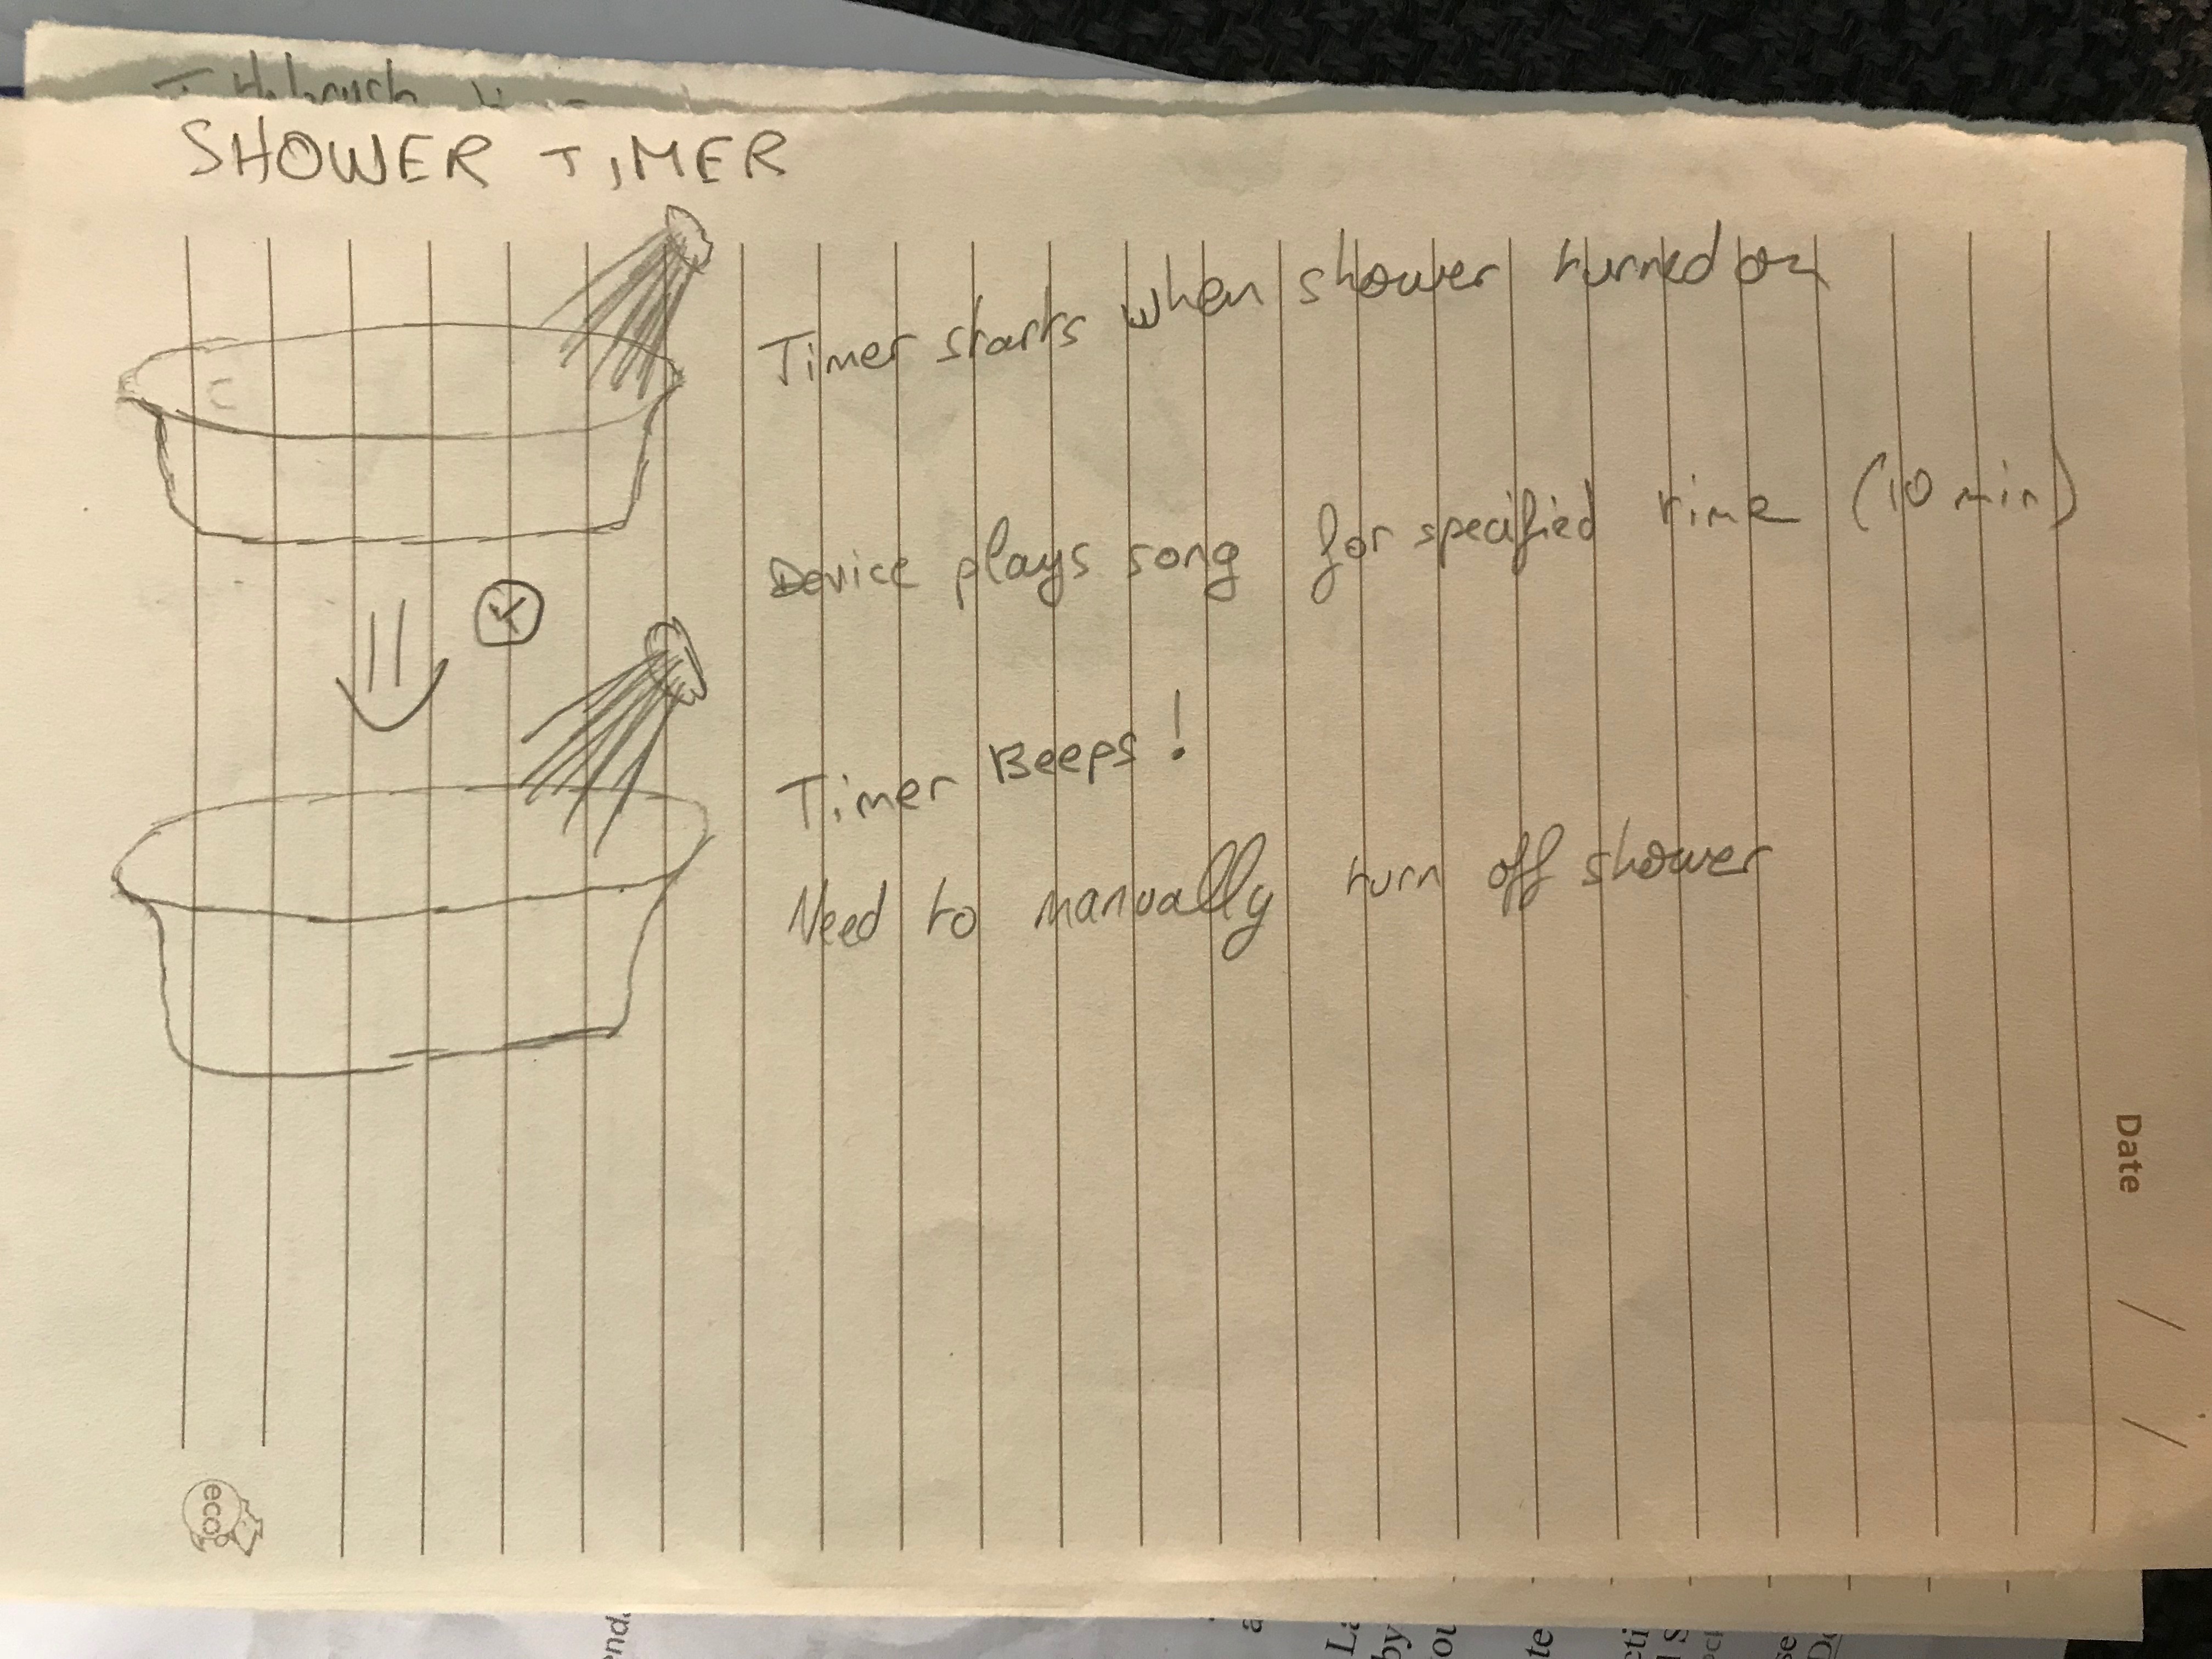 SHOWER TIMER
Timer starts when shower turned on
Device plays song for specified time (10 min)
Timer Beeps!
Need to manually turn off shower
Date / /
eco